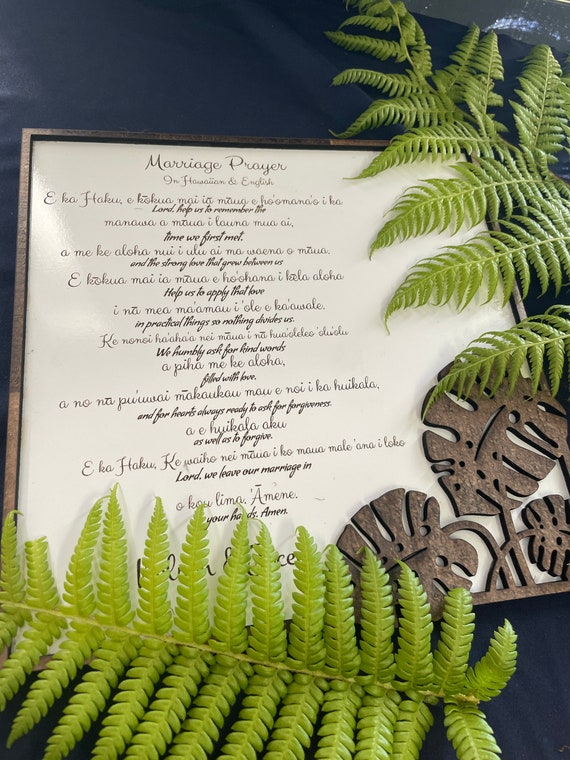 Marriage Prayer
In Hawaiian & English
E ka Haku, e kōkua mai iā māua e hoʻomanaʻo i ka
Lord, help us to remember the
manawa a māua i launa mua ai,
time we first met.
a me ke aloha nui i ulu ai ma waena o māua.
and the strong love that grew between us
E kōkua mai iā māua e hoʻohana i kēla aloha
Help us to apply that love
i nā mea maʻamau i ʻole e kaʻawale.
in practical things so nothing divides us.
Ke nonoi haʻahaʻa nei māua i nā huaʻōleleo ʻoluʻolu
We humbly ask for kind words
a piha me ke aloha,
filled with love.
a no nā puʻuwai mākaukau mau e noi i ka huikala,
and for hearts always ready to ask for forgiveness.
a e huikala aku
as well as to forgive.
E ka Haku, Ke waiho nei māua i ko māua male ʻana i loko
Lord, we leave our marriage in
o kou lima, ʻĀmene.
your hands, Amen.